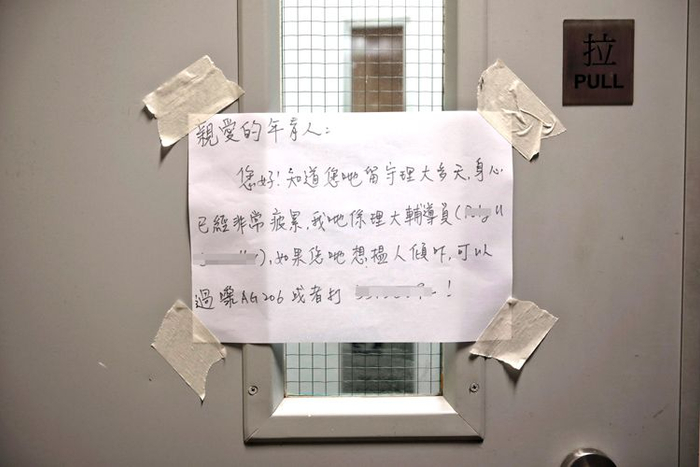 親愛的年青人：
您好！知道您哋留守理大多天，身心
已經非常疲累，我哋係理大輔導員（PolyU
），如果您哋想搵人傾吓，可以
過嚟AG206或者打！
拉
PULL